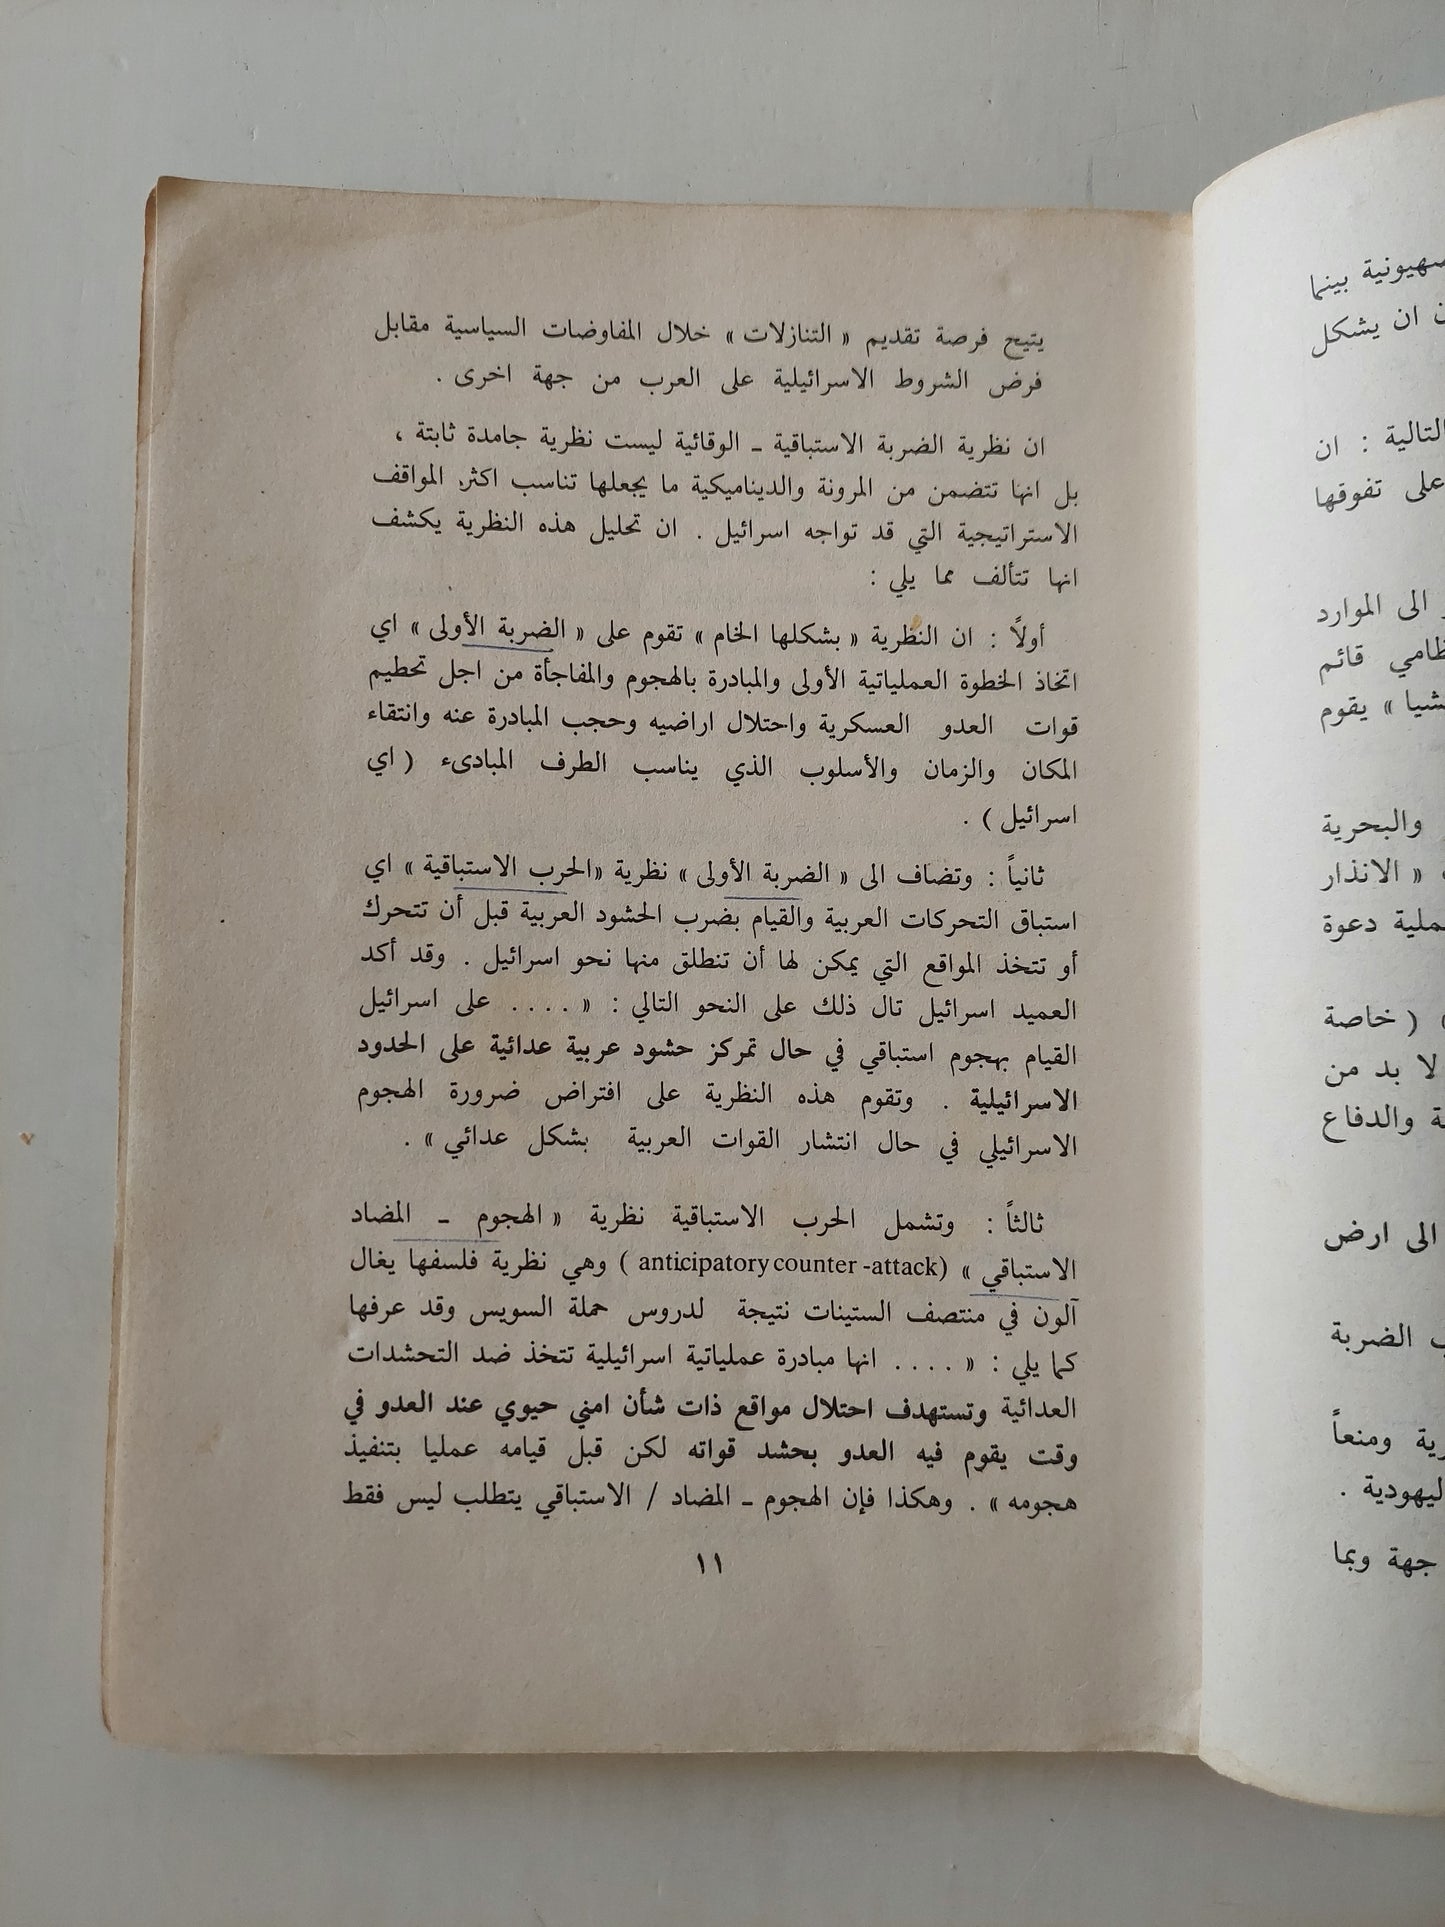 يتيح فرصة تقديم « التنازلات » خلال المفاوضات السياسية مقابل
فرض الشروط الاسرائيلية على العرب من جهة اخرى .
ان نظرية الضربة الاستباقية ـ الوقائية ليست نظرية جامدة ثابتة ،
بل انها تتضمن من المرونة والديناميكية ما يجعلها تناسب اكثر المواقف
الاستراتيجية التي قد تواجه اسرائيل . ان تحليل هذه النظرية يكشف
انها تتألف مما يلي :
أولاً : ان النظرية « بشكلها الخام » تقوم على « الضربة الأولى » اي
اتخاذ الخطوة العملياتية الأولى والمبادرة بالهجوم والمفاجأة من اجل تحطيم
قوات العدو العسكرية واحتلال اراضيه وحجب المبادرة عنه وانتقاء
المكان والزمان والأسلوب الذي يناسب الطرف المبادىء ( اي
اسرائيل ) .
ثانياً : وتضاف الى « الضربة الأولى » نظرية «الحرب الاستباقية » اي
استباق التحركات العربية والقيام بضرب الحشود العربية قبل أن تتحرك
أو تتخذ المواقع التي يمكن لها أن تنطلق منها نحو اسرائيل . وقد أكد
العميد اسرائيل تال ذلك على النحو التالي : « .... على اسرائيل
القيام بهجوم استباقي في حال تمركز حشود عربية عدائية على الحدود
الاسرائيلية . وتقوم هذه النظرية على افتراض ضرورة الهجوم
الاسرائيلي في حال انتشار القوات العربية بشكل عدائي » .
ثالثاً : وتشمل الحرب الاستباقية نظرية « الهجوم ـ المضاد
الاستباقي » (anticipatory counter -attack ) وهي نظرية فلسفها يغال
آلون في منتصف الستينات نتيجة لدروس حملة السويس وقد عرفها
كما يلي : « .... انها مبادرة عملياتية اسرائيلية تتخذ ضد التحشدات
العدائية وتستهدف احتلال مواقع ذات شأن امني حيوي عند العدو في
وقت يقوم فيه العدو بحشد قواته لكن قبل قيامه عمليا بتنفيذ
هجومه » . وهكذا فإن الهجوم ـ المضاد / الاستباقي يتطلب ليس فقط
١١
بينما
ان يشكل
التالية : ان
على تفوقها
الى الموارد
قائم
» يقوم
والبحرية
« الانذار
دعوة
( خاصة
لا بد من
والدفاع
الى ارض
الضربة
ومنعاً
.
جهة وبما